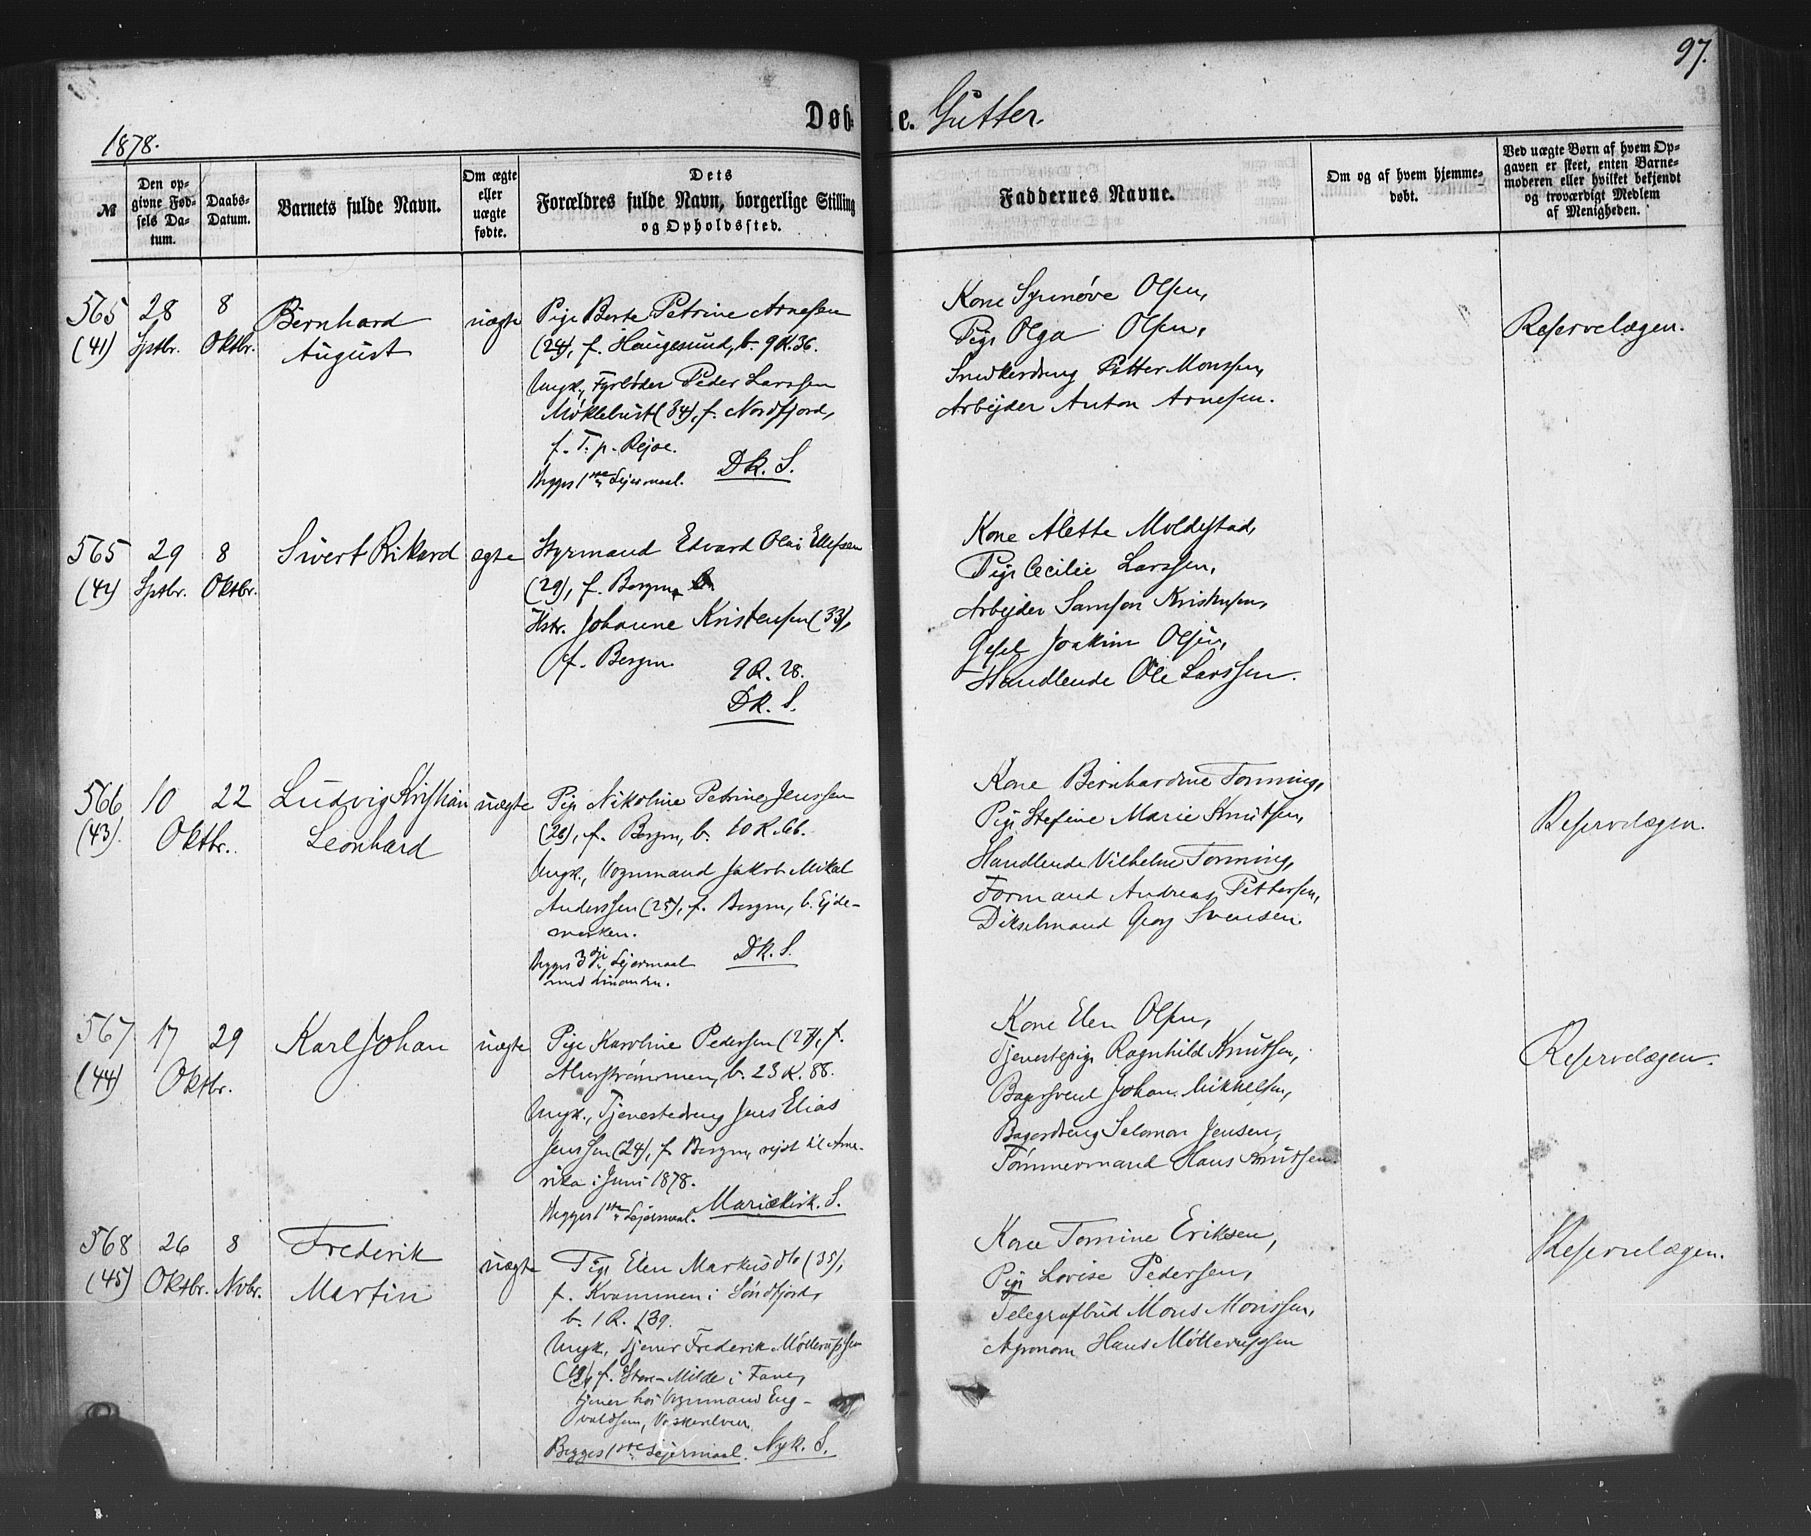 97.
1878.
Døbte. Gutter.
№
Den opgivne Fødsels Datum.
Daabs-Datum.
Barnets fulde Navn.
Om ægte eller uægte fødte.
Dets Forældres fulde Navn, borgerlige Stilling og Opholdssted.
Faddernes Navne.
Om og af hvem hjemmedøbt.
Ved uægte Børn af hvem Opgaven er skeet, enten Barnemoderen eller hvilket bekjendt og troværdigt Medlem af Menigheden.
565
(41)
28
Sptbr.
8
Oktbr.
Bernhard
August
uægte
Pige Berte Petrine Arnesen
(24), f. Haugesund, b. 9 R. 36.
Ungk., Fyrbøder Peder Larssen
Møklebust (34), f. Nordfjord,
f. T. p. Rejse.
Begges 1ste Lejermaal. DK. S.
Kone Synnøve Olsen,
Pige Olga Olsen,
Snedkerdreng Petter Monssen,
Arbejder Anton Arnesen.
Reservelægen.
565
(42)
29
Sptbr.
8
Oktbr.
Sivert Rikard
ægte
Styrmand Edvard Olai Ellefsen
(29), f. Bergen,
Hstr. Johanne Kristensen (33),
f. Bergen. 9 R. 28.
DK. S.
Kone Alette Moldestad,
Pige Cecilie Larssen,
Arbejder Samson Kristensen,
Gesel Joakim Olsen,
Handlende Ole Larssen.
566
(43).
10
22
Oktbr.
Ludvig Kristian
Leonhard
uægte
Pige Nikoline Petrine Jenssen
(26), f. Bergen, b. 10 R. 66.
Ungk., Vognmand Jakob Mikal
Anderssen (25), f. Bergen, b. Ejdemarken.
Begges 3die Lejermaal DK. S.
med hinanden.
Kone Bernhardine Torming,
Pige Stefine Marie Knutsen,
Handlende Vilhelm Torming,
Formand Andreas Pettersen,
Dikselmand Georg Svensen.
Reservelægen.
567
(44)
17
29
Oktbr.
Karl Johan
uægte
Pige Karoline Pedersen (27), f.
Alverstrømmen, b. 23 R. 88.
Ungk., Tjenestedreng Jens Elias
Jenssen (24), f. Bergen, rejst til Amerika i Juni 1878.
Begges 1ste Lejermaal. Mariekirk. S.
Kone Elen Olsen,
Tjenestepige Ragnhild Knutsen,
Bagersvend Johan Mikkelsen,
Bagerdreng Salomon Jensen,
Tømmermand Hans Knutsen.
Reservelægen.
568
(45)
26
Oktbr.
8
Nvbr.
Frederik
Martin
uægte
Pige Elen Markusdtr (35),
f. Kvammen i Søndfjord,
b. 1 R. 139.
Ungk., Tjener Frederik
f. Store-Milde i Fane,
tjener hos Vognmand Engvaldsen,
Begges 1ste Lejermaal. Nyk. S.
Kone Tomine Eriksen,
Pige Lovise Pedersen,
Telegrafbud Mons Monssen,
Agronom Hans
Reservelægen.